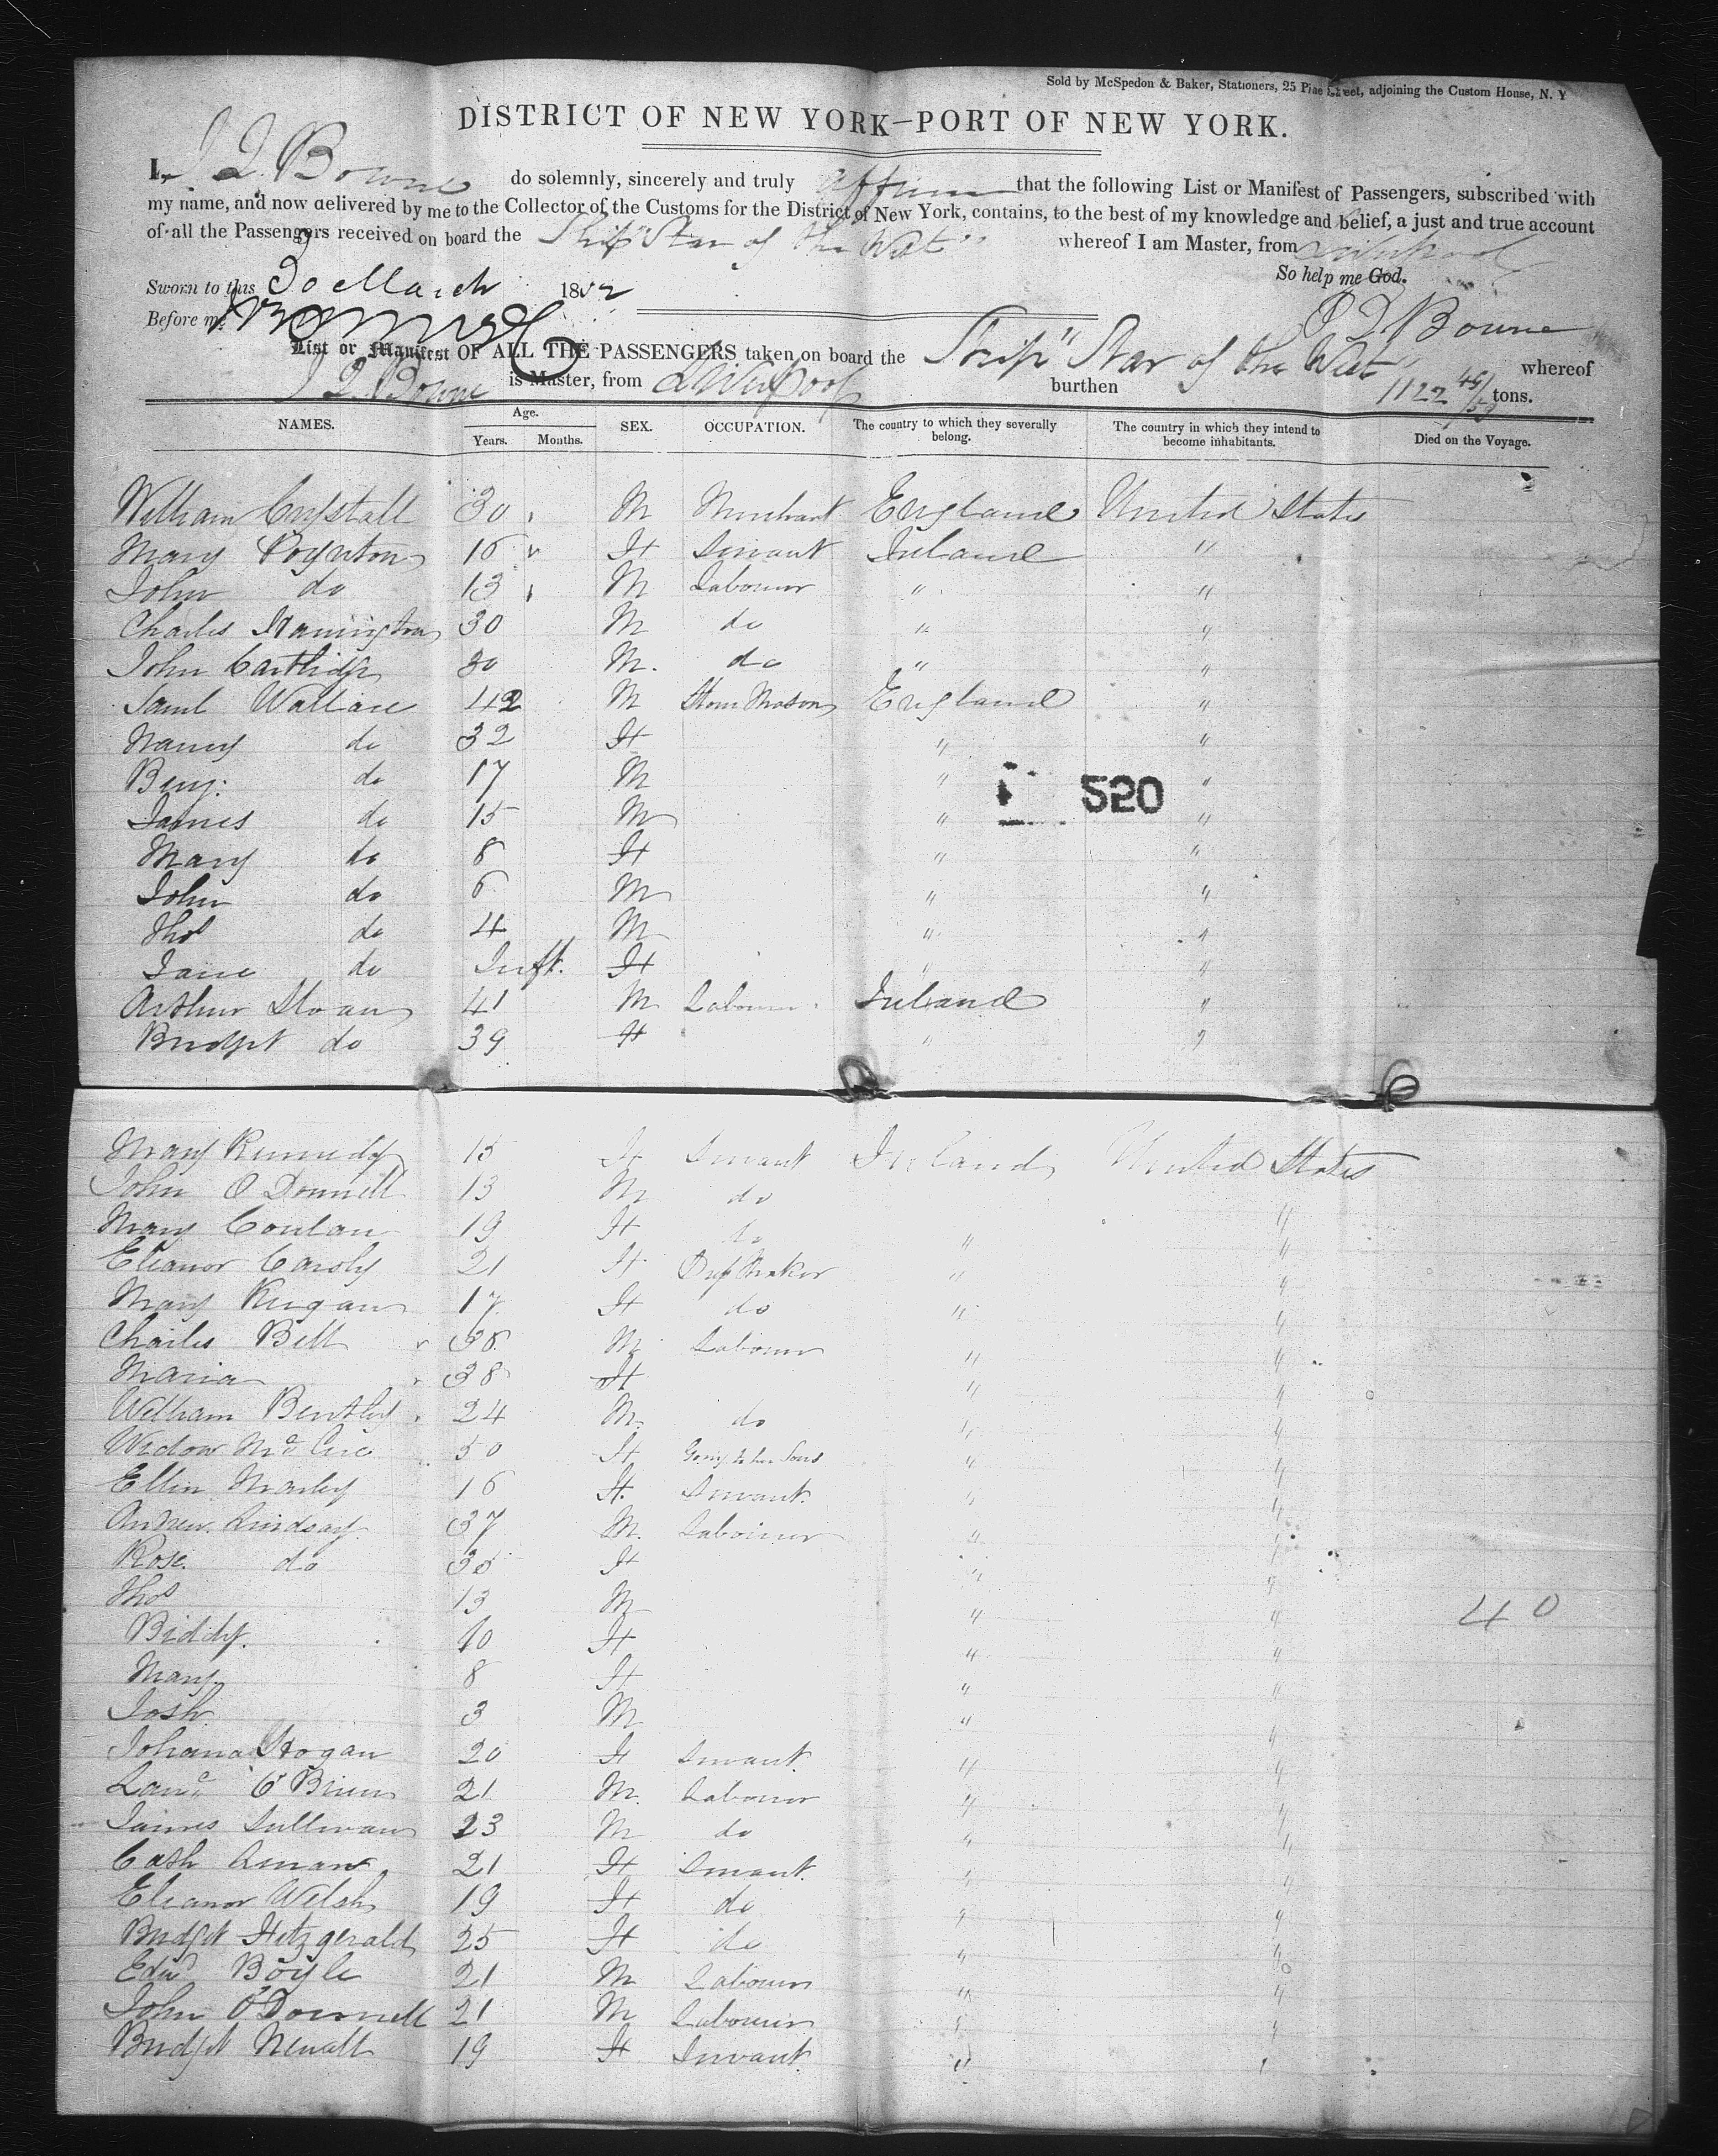 Sold by McSpedon & Baker, Stationers, 25 Pine Street, adjoining the Custom House, N. Y
DISTRICT OF NEW YORK—PORT OF NEW YORK.
I, Bowne do solemnly, sincerely and truly affirm that the following List or Manifest of Passengers, subscribed with
my name, and now delivered by me to the Collector of the Customs for the District of New York, contains, to the best of my knowledge and belief, a just and true account
of all the Passengers received on board the Ship "Star of the West" whereof I am Master, from Liverpool
So help me God.
Sworn to this 30 March 1852
Before me
Bowne
List or Manifest OF ALL THE PASSENGERS taken on board the Ship "Star of the West" whereof
Bowne is Master, from Liverpool burthen 1122 tons.
NAMES. Age. Years. Months. SEX. OCCUPATION. The country to which they severally belong. The country in which they intend to become inhabitants. Died on the Voyage.
William Crystall 30 M Merchant England United States
Mary Poynton 16 F Servant Ireland "
John do 13 M Labourer " "
Charles Hannington 30 M do " "
John Cartlidge 30 M. do " "
Saml Wallace 42 M Stone Mason England "
Nancy do 32 F " "
Benj: do 17 M " "
520
James do 15 M " "
Mary do 8 F " "
John do 6 M " "
Thos do 4 M " "
Jane do Inft. F " "
Arthur Sloan 41 M Labourer Ireland "
Bridget do 39 F " "
Mary Kennedy 15 F Servant Ireland United States
John O Donnell 13 M do "
Mary Conlan 19 F do " "
Eleanor 21 F Dress Maker " "
Mary Keegan 17 F do " "
Charles Bell 38 M Labourer " "
Maria 38 F " "
William Bentley 24 M. do " "
Widow 50 F Going to her Sons " "
Ellen Marley 16 F. Servant. " "
Andrew Lindsay 37 M. Labourer " "
Rose do 35 F " "
Thos 13 M " "
40
Biddy. 10 F " "
Mary. 8 F " "
Josh 3 M " "
Johana Hogan 20 F Servant. " "
O'Brien 21 M. Labourer " "
James Sullivan 23 M do " "
Cath 21 F Servant. " "
Eleanor Welsh 19 F do " "
Bridget Fitzgerald 25 F do " "
Edwd Boyle 21 M Labourer " "
John O'Donnell 21 M Labourer " "
Bridget Newall 19 F Servant. " "